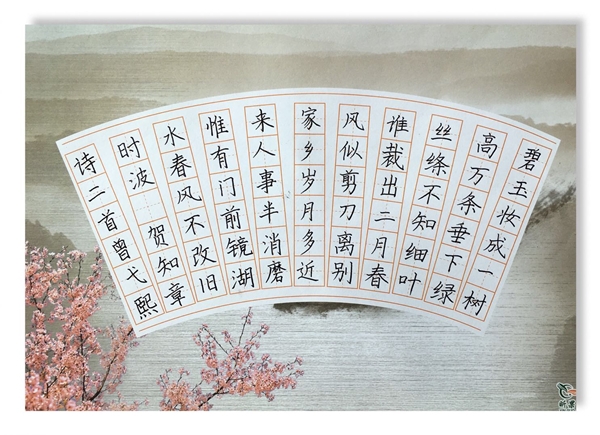 碧玉妆成一树
高万条垂下绿
丝绦不知细叶
谁裁出二月春
风似剪刀离别
家乡岁月多近
来人事半消磨
惟有门前镜湖
水春风不改旧
时波 贺知章
诗二首曾弋熙